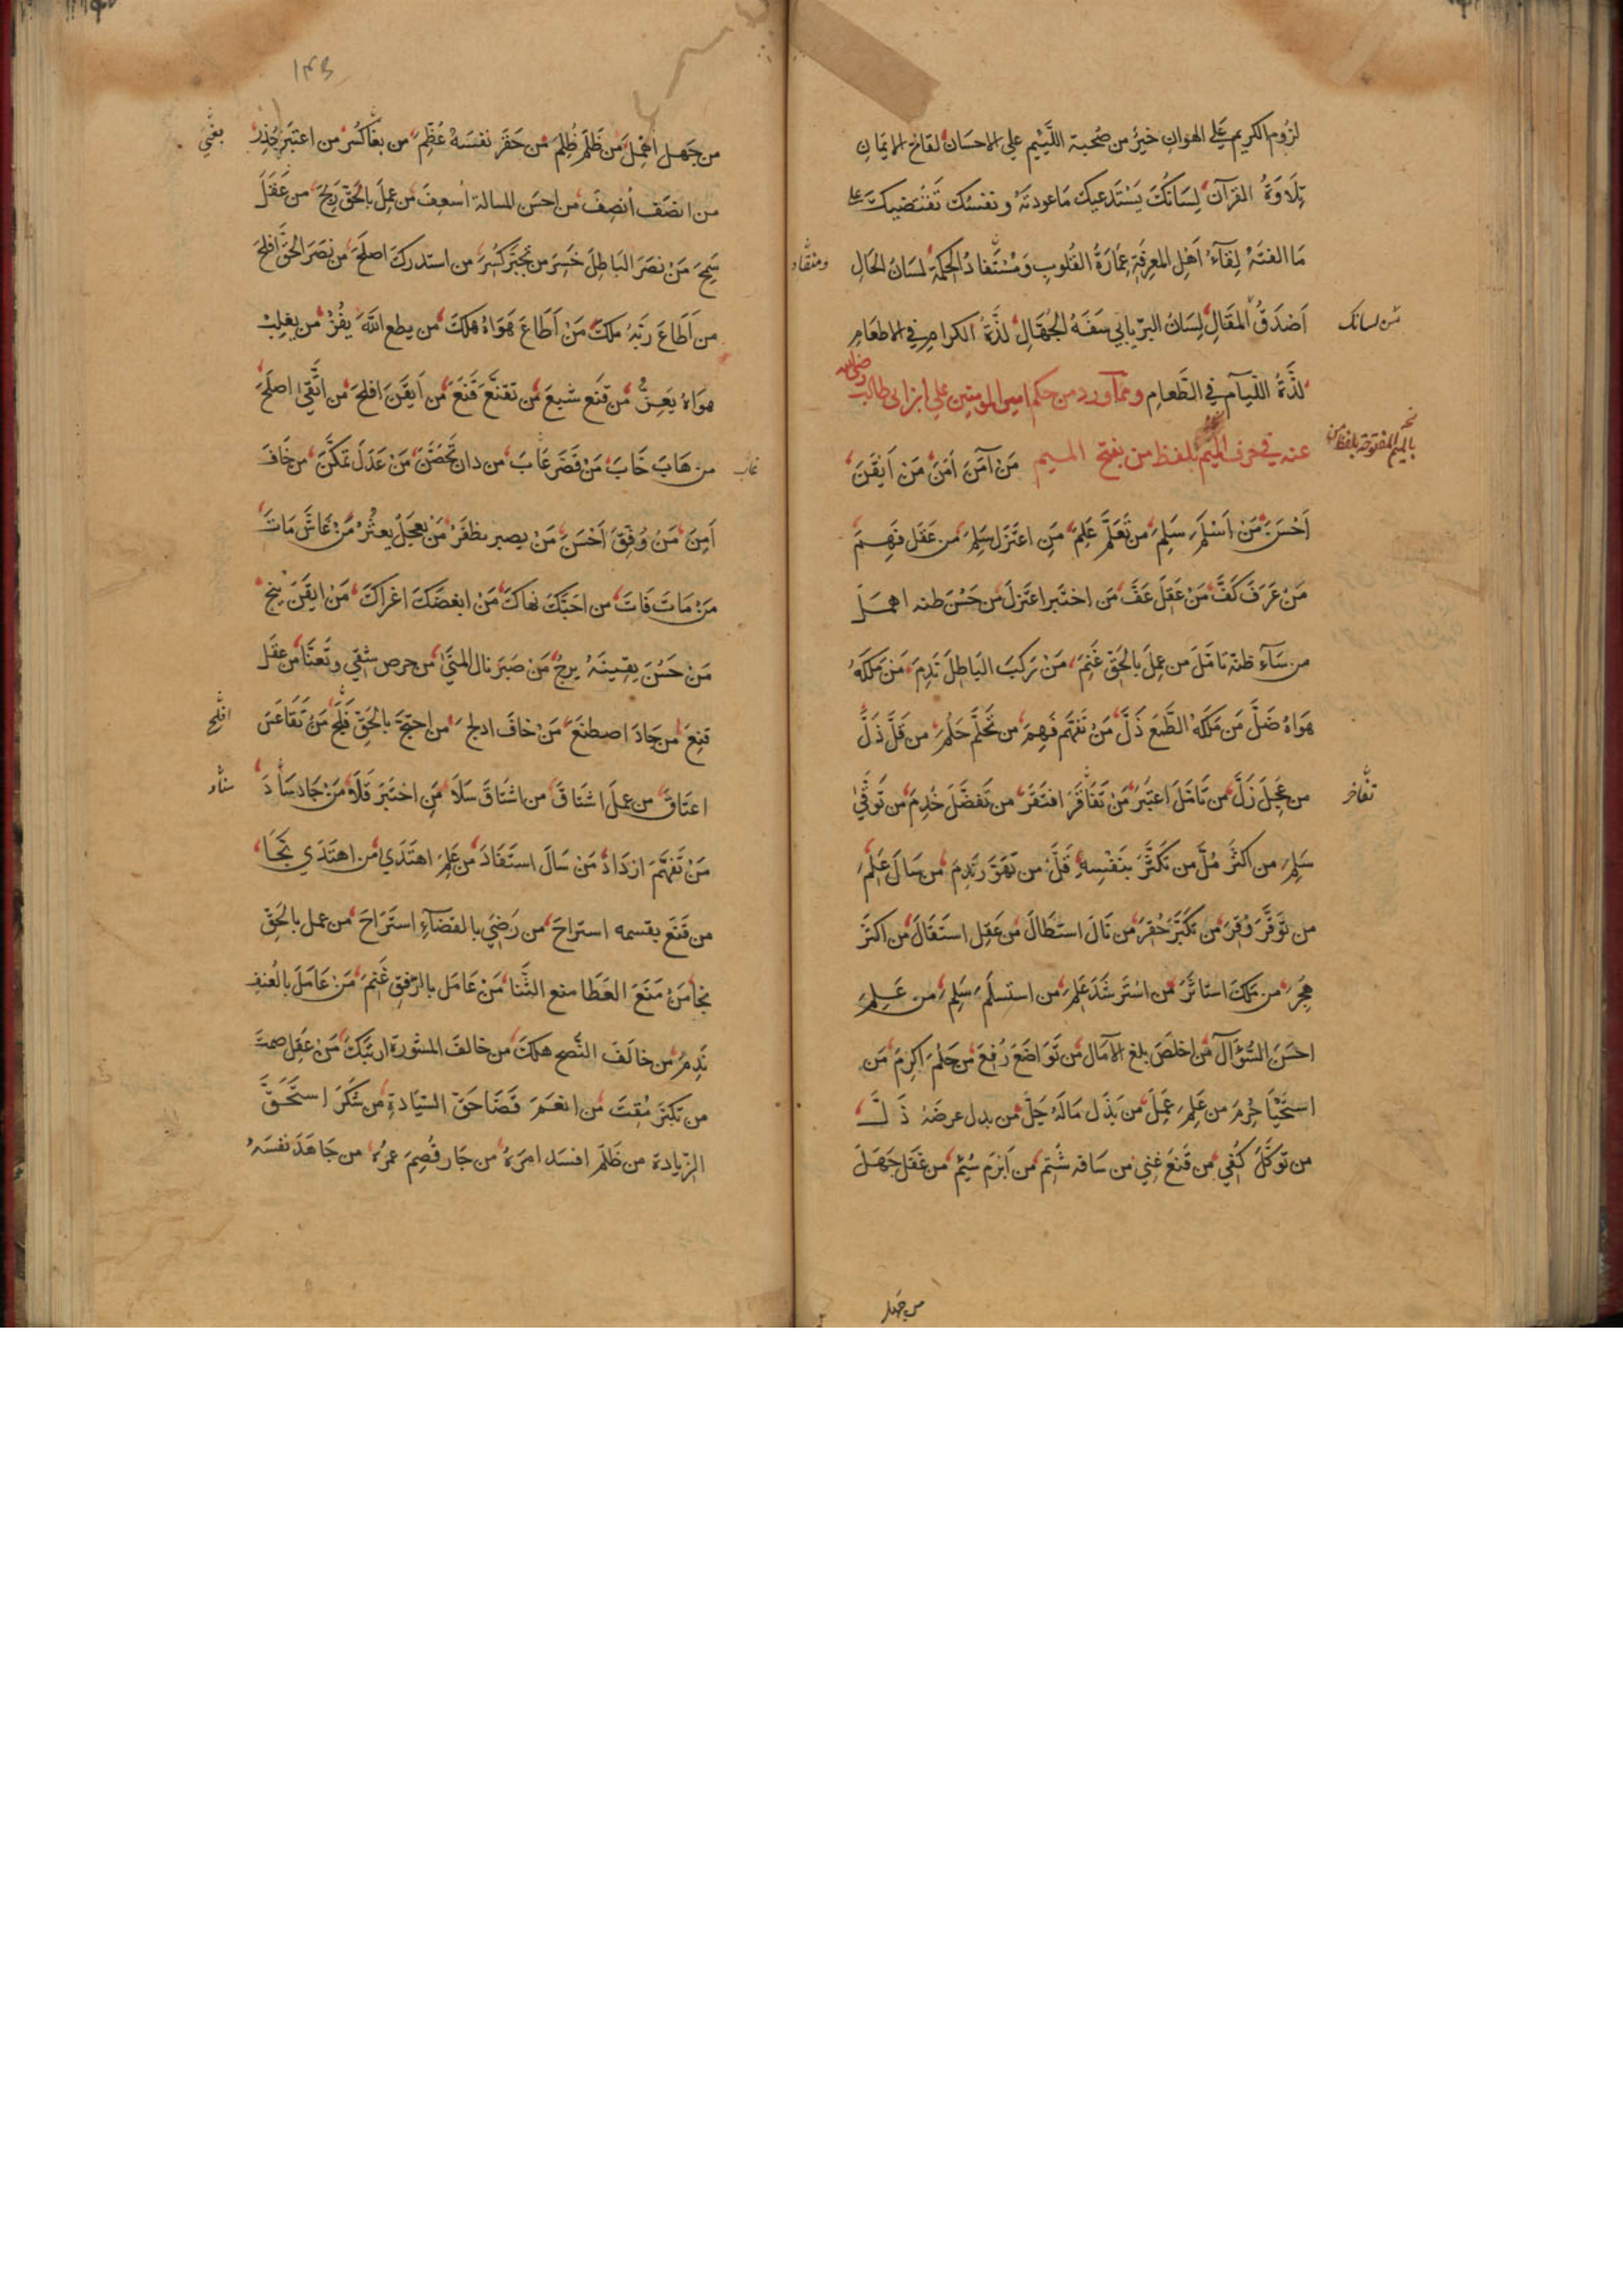 لزوم الكريم على الهوان خير من صحبة اللئيم على الاحسان لقاح الايمان
تلاوة القرآن لسانك يستدعيك ما عودته ونفسك تقتضيك على
ما الفته لقاء اهل المعرفة عمارة القلوب ومستفاد الحكمة لسان الحال
اصدق المقال لسان البر يابى سفه الجهال لذة الكرام في الاطعام
لذة اللئام في الطعام ومما ورد من حكم امير المومنين علي ابن ابى طالب رضى الله
عنه في حرف الميم بلفظ من بفتح الميم من آمن امن من ايقن
احسن من اسلم سلم من تعلم علم من اعتزل سلم من عقل فهم
من عرف كف من عقل عف من اختبر اعتزل من حسن ظنه اهمل
من ساء ظنه تامل من عمل بالحق غنم من ركب الباطل ندم من ملكه
هواه ضل من ملكه الطمع ذل من تفهم فهم من تحلم حلم من قل ذل
من عجل زل من تامل اعتبر من تفاقر افتقر من تفضل خدم من توقى
سلم من اكثر مل من تكثر بنفسه قل من تهور ندم من سال علم
من توقر وقر من تكبر حقر من نال استطال من عقل استقال من اكثر
هجر من ملك استاثر من استرشد علم من استسلم سلم من علم
احسن السؤال من اخلص بلغ الآمال من تواضع رفع من حلم اكرم من
استحيا حرم من علم عمل من بذل ماله جل من بدل عرضه ذل
من توكل كفي من قنع غني من سافه شتم من ابرم سئم من غفل جهل
ومنقاد
من لسانك
بالميم المفتوحة بلفظ من
تفاخر
من جهل
١٤٣
من جهل اهمل من ظلم ظلم من حقر نفسه عظم من بغا كسر من اعتبر حذر
من انصف انصف من احسن المسالة اسعف من عمل بالحق ربح من عقل
سمح من نصر الباطل خسر من تجبر كسر من استدرك اصلح من نصر الحق افلح
من اطاع ربه ملك من اطاع هواه هلك من يطع الله يفز من يغلب
هواه يعز من قنع شبع من تقنع قنع من ايقن افلح من اتقى اصلح
من هاب خاب من قصر عاب من دان تحصن من عدل تمكن من خاف
امن من وفق احسن من يصبر يظفر من يعجل يعثر من عاش مات
من مات فات من احبك نهاك من ابغضك اغراك من ايقن ينج
من حسن يقينه يرج من صبر نال المنى من حرص شقي وتعنا من عقل
قنع من جاد اصطنع من خاف ادلج من احتج بالحق فلج من تقاعس
اعتاق من عمل اشتاق من اشتاق سلا من اختبر قلا من جاد ساد
من تفهم ازداد من سال استفاد من علم اهتدي من اهتدي نجا
من قنع بقسمه استراح من رضي بالقضاء استراح من عمل بالحق
نجا من منع العطا منع الثنا من عامل بالرفق غنم من عامل بالعنف
ندم من خالف النصح هلك من خالف المشورة ارتبك من عقل صمت
من تكبر مقت من انعم قضا حق السيادة من شكر استحق
الزيادة من ظلم افسد امره من جار قصم عمره من جاهد نفسه
بغي
غاب
افلج